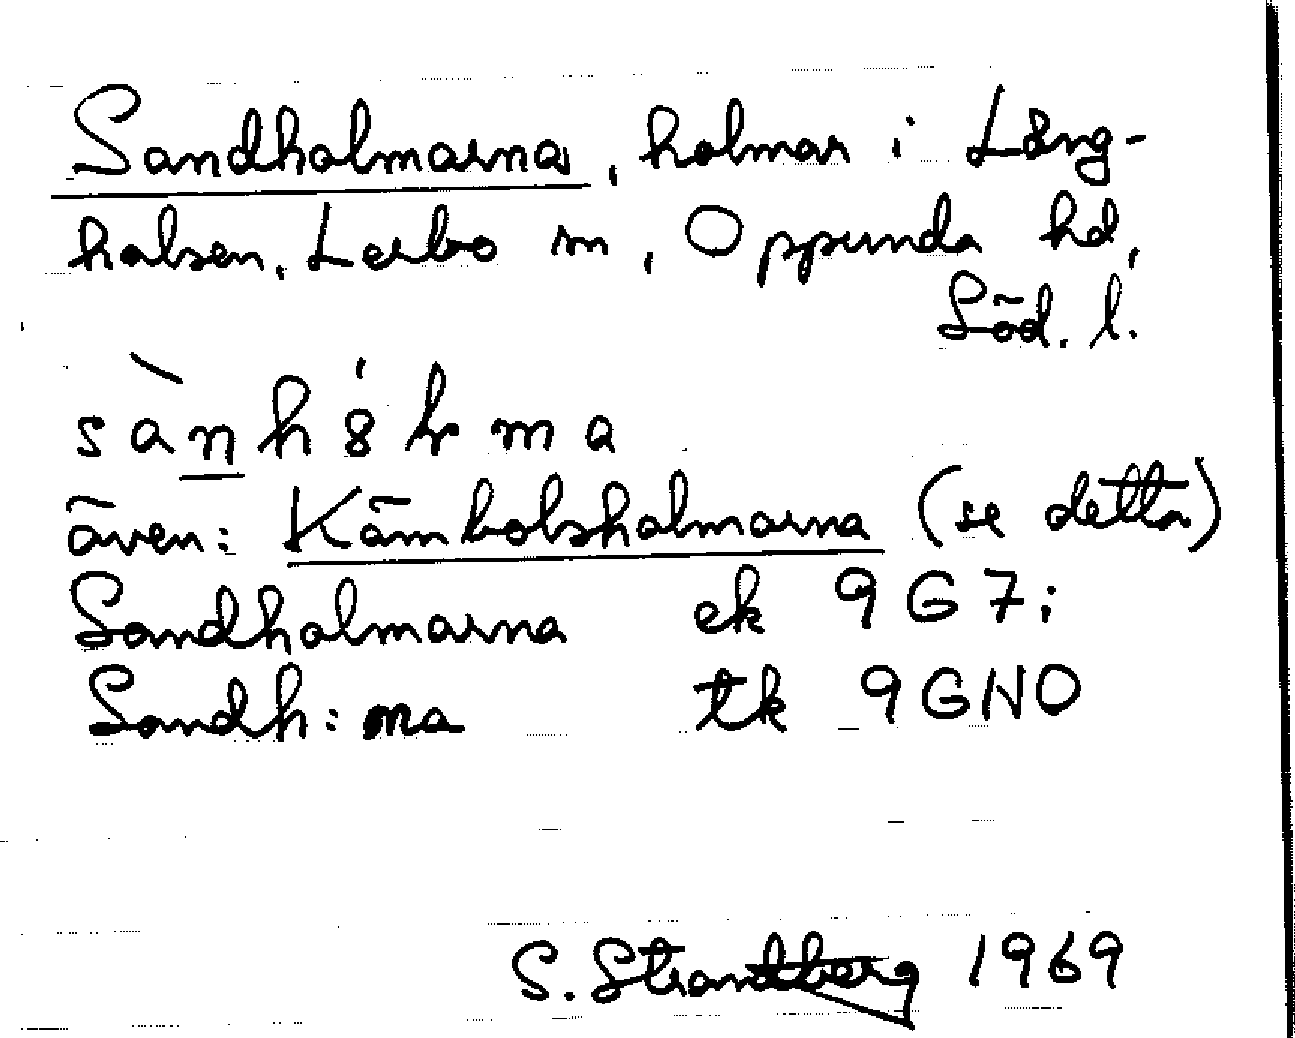 Sandholmarna, holmar i Lång-
halsen, Lerbo sn, Oppunda hd,
Söd. l.
sànhó̀ḷma
även: Kämbolsholmarna (se detta)
Sandholmarna ek 9G7;
Sandh:na tk 9GNO
S. Strandberg 1969